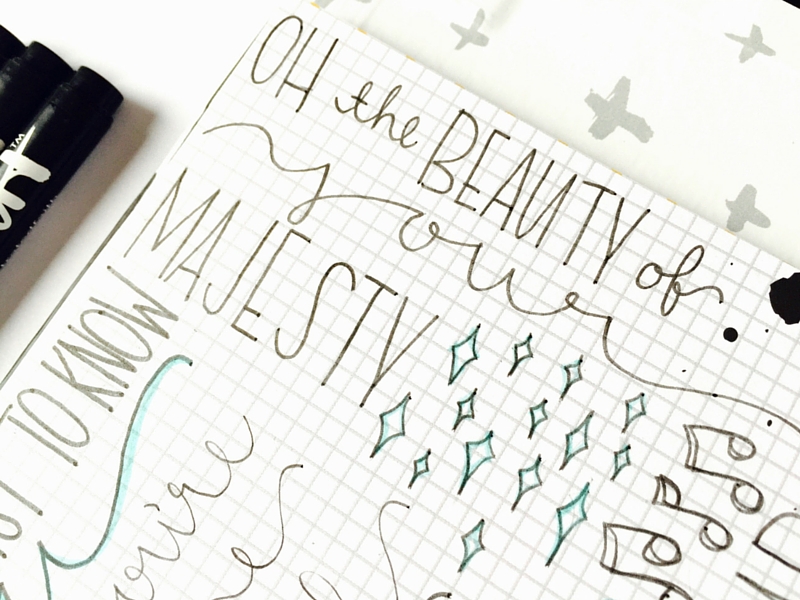 OH the BEAUTY of
your
MAJESTY
TO KNOW